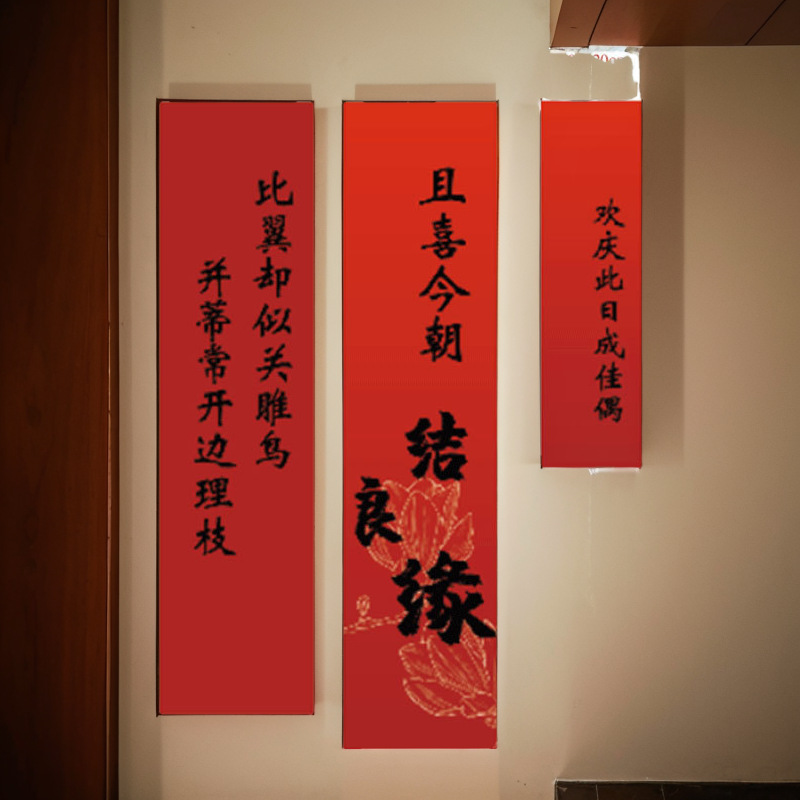 欢庆此日成佳偶
且喜今朝
结良缘
比翼却似关雎鸟
并蒂常开边理枝